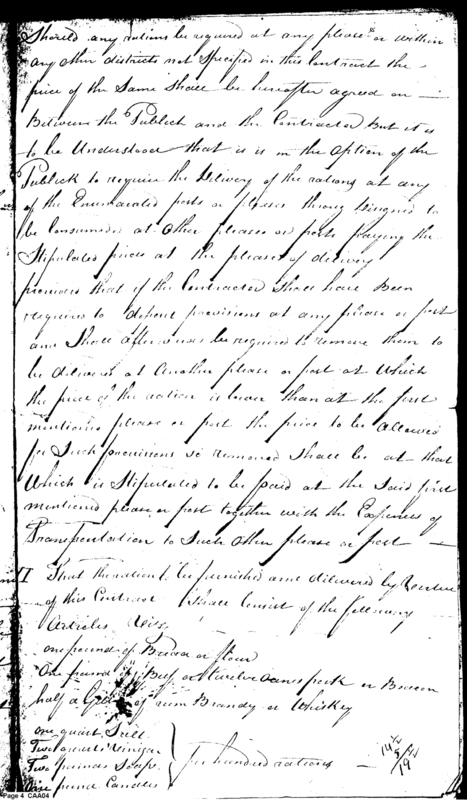 Should any rations be required at any please or within
any other districts not Specified in this Contract the
price of the Same Shall be hereafter agreed on —
Between the Publick and the Contractor But it is
to be Understood that is is in the Option of the
Publick to require the Delivery of the rations at any
of the Enumerated posts or pleases Disigned to
be Consumed at other pleases or posts paying the
Stipulated prices at the pleases of delivery
provided that if the Contractor Shall have Been
required to deposit provisions at any please or post
and Shall afterwards be required to remove them to
be delivered at Another please or post at Which
the price of the ration is lower than at the first
mentioned please or post the price to be Allowed
for Such provisions so removed Shall be at that
Which is Stipulated to be paid at the Said first
mentioned please or post together with the Expenses of
Transportation to Such other please or post —
II That the rations to be furnished and delivered by Vertue
of this Contract Shall Consist of the following
Articles Viz
one pound of Bread or flour
One pound of Beef or twelve ounces pork or Bacon
half a Gill of rum Brandy or Whiskey
one quart Salt
Two quarts Vinigar
Two pounds Soap
One pound Candles
pr hundred rations —
Page 4 CAA04